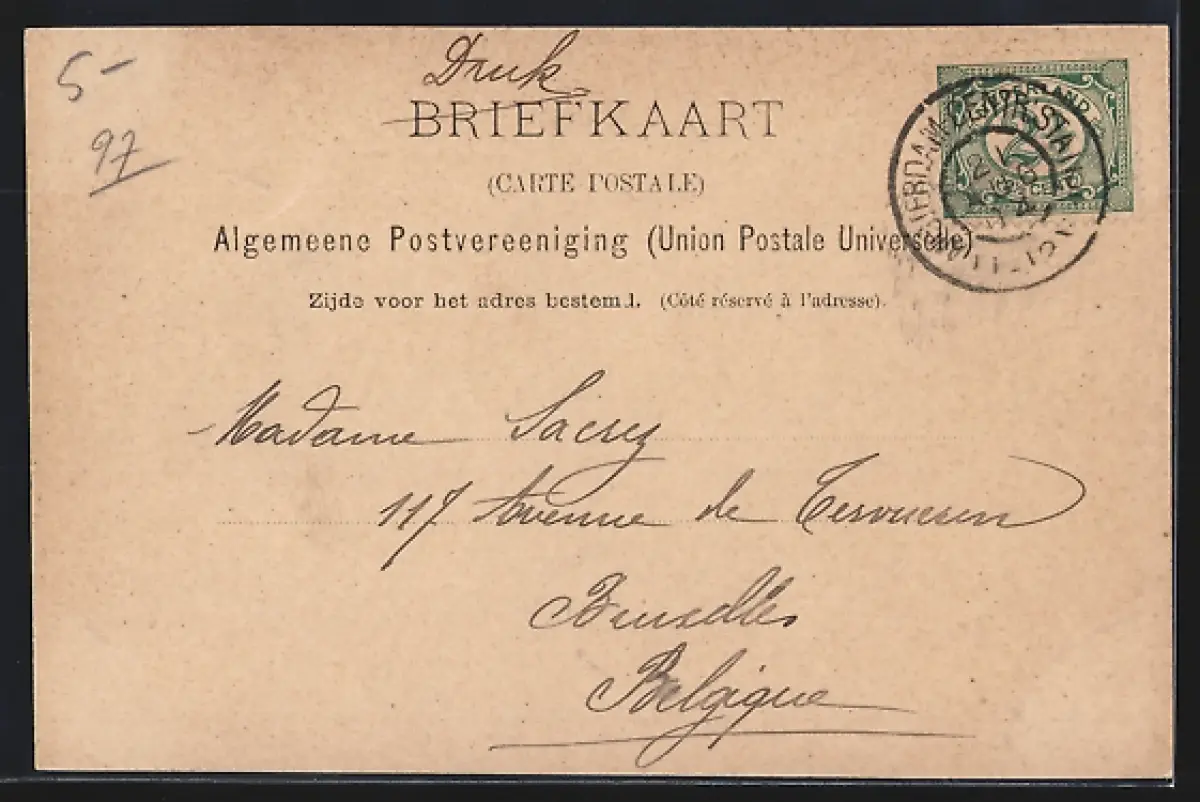 5-
97
Druk
BRIEFKAART
(CARTE POSTALE)
Algemeene Postvereeniging (Union Postale Universelle)
Zijde voor het adres bestemd. (Côté réservé à l'adresse).
AMSTERDAM-CENTR. STAT.
NEDERLAND
Madame Sacrez
117 Avenue de Tervueren
Bruxelles
Belgique